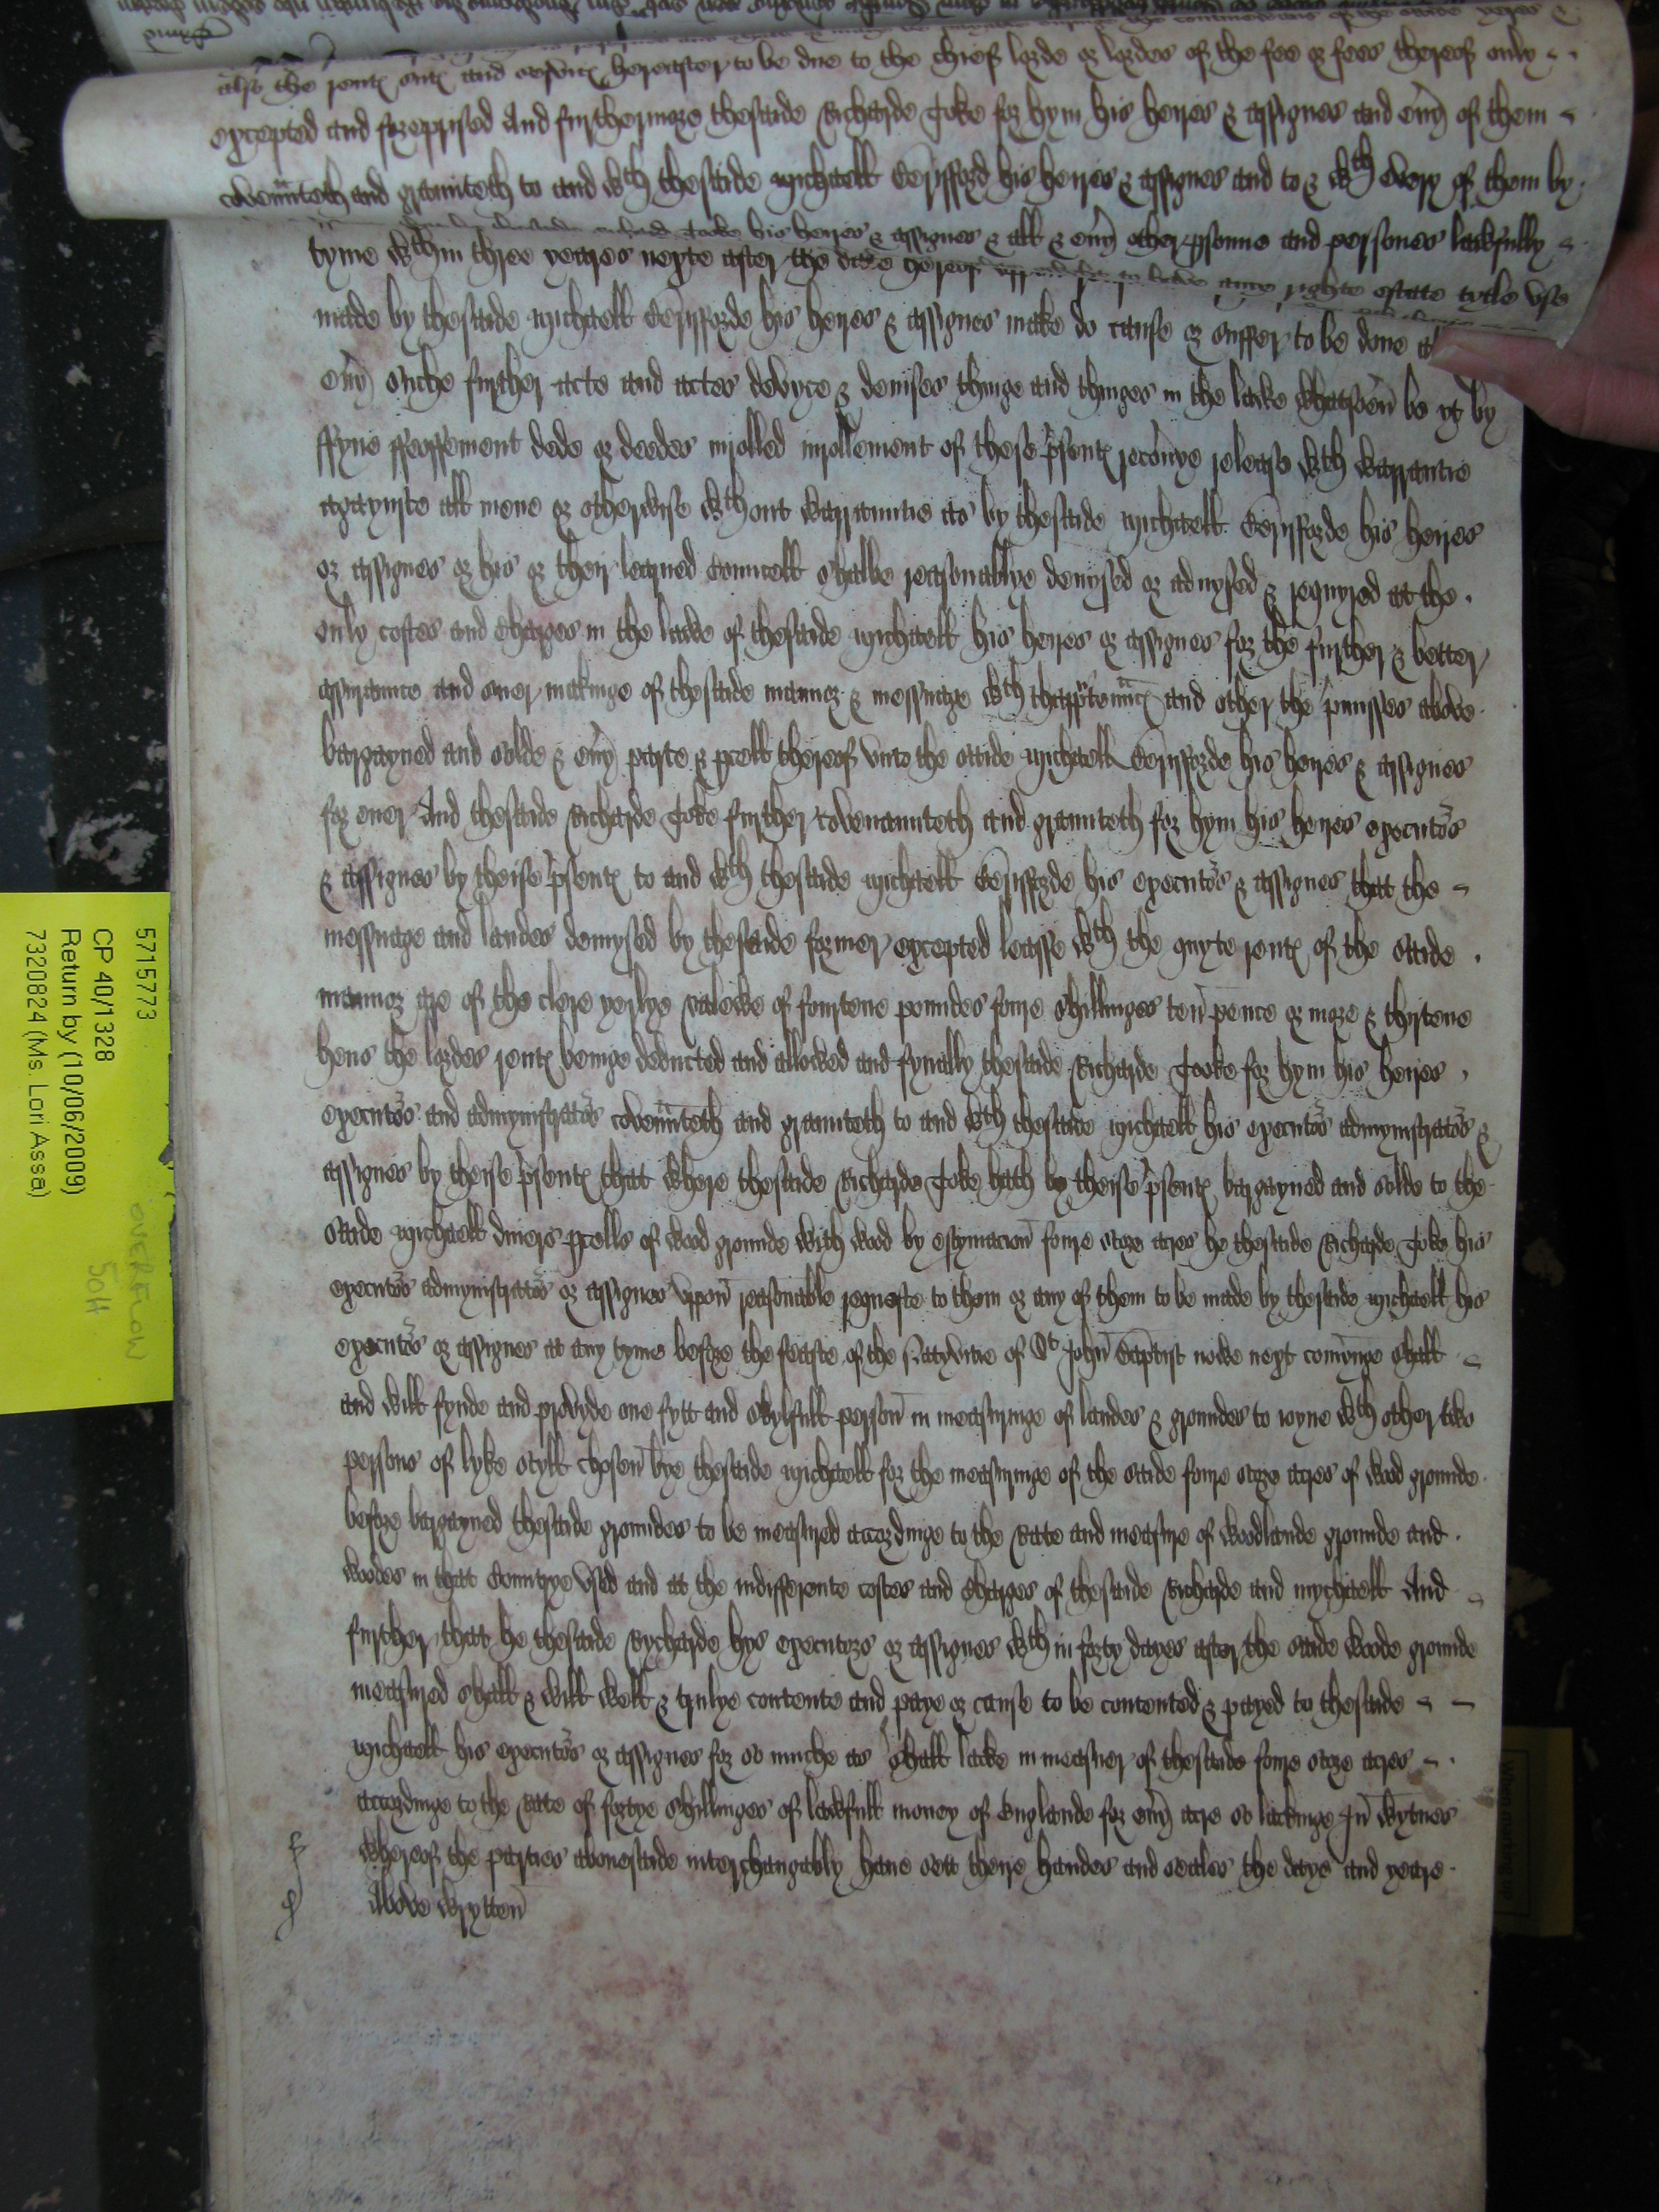 also the rent(es) suit(es) and s(er)vic(es) hereafter to be due to the chief lorde or lordes of the fee or fees thereof only
excepted and foreprised And furthermore thesaide Richarde Coke for hym his heires & assignes and eu(er)y of them
covenn(a)nteth and graunteth to and w(i)th thesaide Michaell his heires & assignes and to & w(i)th every of them by
his heires & assignes & all & eu(er)y other p(er)sonne and persones lawfully
tyme w(i)thin three yeares nexte after the date hereof to have any righte estate tytle vse
made by thesaide Michaell his heires & assignes make do cause or suffer to be done
eu(er)y suche further acte and actes devyce & deuises thinge and thinges in the lawe whatsoeu(er) be yt by
ffyne ffeoffement dede or deedes inrolled inrollement of these p(re)sent(es) recou(er)ye release w(i)th warrantie
agaynste all mene or otherwise w(i)thout warrauntie as by thesaide Michaell his heires
or assignes or his or their learned Councell shalbe reasonablye deuysed or aduysed & requyred at the
only costes and charges in the lawe of thesaide Michaell his heires or assignes for the further & better
assuraunce and suer makinge of thesaide mannor & messuage w(i)th thapp(ur)ten(a)nc(es) and other the p(re)misses above
bargayned and solde & eu(er)y parte & p(ar)cell thereof vnto the saide Michaell his heires & assignes
for euer And thesaide Richarde Coke further covenaunteth and graunteth for hym his heires executo(ur)s
& assignes by theise p(re)sent(es) to and w(i)th thesaide Michaell his executo(ur)s & assignes that the
messuage and landes demysed by thesaide former excepted leasse w(i)th the quyte rent(es) of the saide
mannor are of the clere yerlye valewe of fourtene poundes foure shillinges ten pence or more & thirtene
hens the lordes rent(es) beinge deducted and allowed and fynally thesaide Richarde Cooke for hym his heires
executo(ur)s and admynistrato(ur)s coven(a)nteth and graunteth to and w(i)th thesaide Michaell his executo(ur)s admynistrato(ur)s &
assignes by theise p(re)sent(es) that where thesaide Richarde Coke hath by theise p(re)sent(es) bargayned and solde to the
saide Michaell diuers p(ar)cells of wood grounde with wood by estymacion foure score acres he thesaide Richarde Coke his
executo(ur)s admynistrato(ur)s or assignes vppon reasonable requeste to them or any of them to be made by thesaide Michaell his
executo(ur)s or assignes at any tyme before the feaste of the Natyvitie of St John Baptist nowe next comynge shall
and will fynde and provyde one fytt and skylfull person in measuringe of landes & groundes to ioyne w(i)th other two
persons of lyke skyll chosen bye thesaide Michaell for the measuringe of the saide foure score acres of wood grounde
before bargayned thesaide groundes to be measured accordinge to the Rate and measure of woodlande grounde and
woodes in that Countrye vsed and at the indifferente costes and charges of thesaide Richarde and mychaell And
further that he thesaide Rycharde hys executors or assignes w(i)thin forty dayes after the saide woode grounde
measured shall & will well & trulye contente and paye or cause to be contented & payed to thesaide
Michaell his executo(ur)s or assignes for so muche as shall lacke in measuer of thesaide foure score acres
accordinge to the Rate of fortye shillinges of lawfull money of Englande for eu(er)y acre so lackinge In wytnes
whereof the parties abouesaide interchangably haue sett theire handes and seales the daye and yeare
Above wrytten
5715773
CP 40/1328
Return by (10/06/2009)
7320824 (Ms. Lori Assa)
OVERFLOW
50H